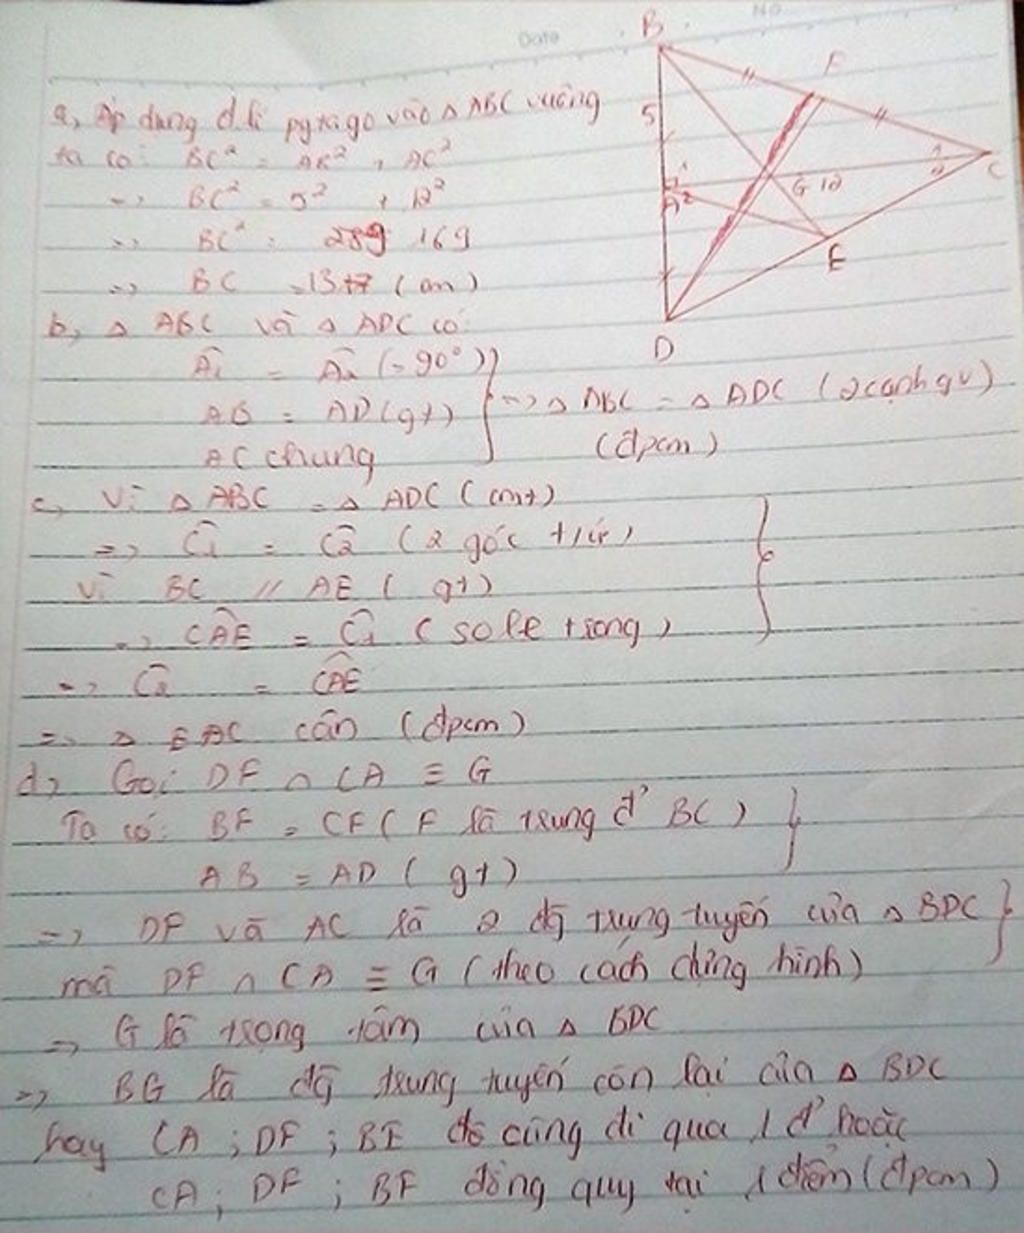 Date
No
B
F
5
1
A 2
G 12
1
2
C
E
D
a, Áp dụng đ.lí pytago vào △ ABC vuông
ta có: BC² = AB² + AC²
=> BC² = 5² + 12²
=> BC² = 169
=> BC = 13 (cm)
b, △ ABC và △ ADC có
Â1 = Â2 (= 90°)
AB = AD (gt)
AC chung
=> △ ABC = △ ADC (2 cạnh gv)
(đpcm)
c, Vì △ ABC = △ ADC (cmt)
=> Ĉ1 = Ĉ2 (2 góc t/ứ)
Vì BC // AE (gt)
=> CAE = Ĉ1 (sole trong)
=> Ĉ2 = CAE
=> △ EAC cân (đpcm)
d, Gọi DF ∩ CA ≡ G
Ta có: BF = CF (F là trung đ' BC)
AB = AD (gt)
=> DF và AC là 2 đg trung tuyến của △ BDC
mà DF ∩ CA ≡ G (theo cách dựng hình)
=> G là trọng tâm của △ BDC
=> BG là đg trung tuyến còn lại của △ BDC
hay CA ; DF ; BE đó cùng đi qua 1 đ' hoặc
CA ; DF ; BF đồng quy tại 1 điểm (đpcm)